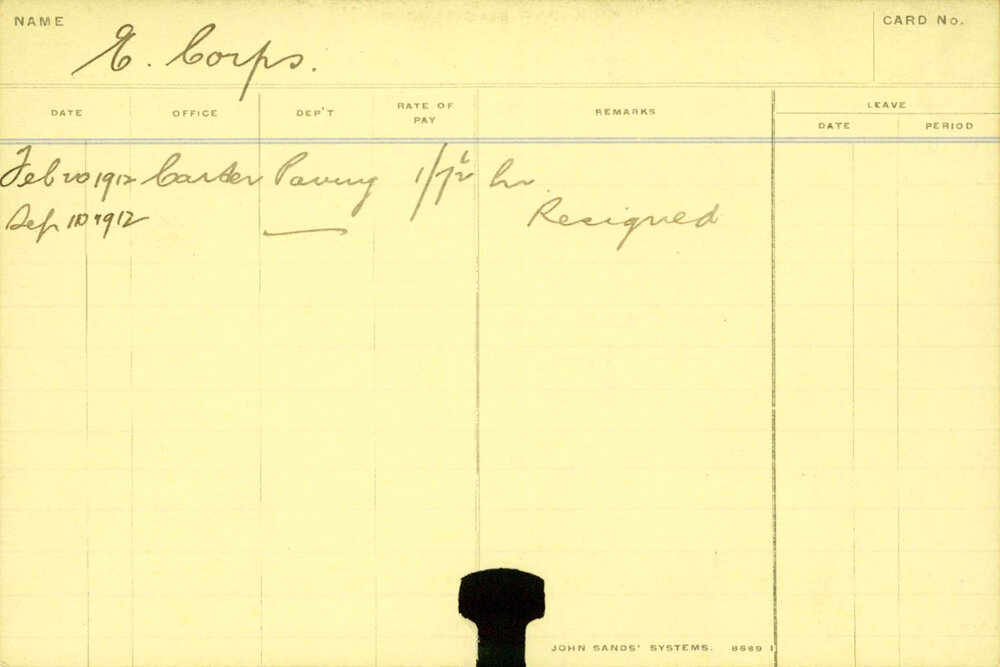 NAME
CARD No.
E. Corps.
DATE OFFICE DEP'T RATE OF PAY REMARKS LEAVE
DATE PERIOD
Feb 20 1912 Carter Paving 1/7½ hr.
Sep 10 1912 — Resigned
JOHN SANDS' SYSTEMS. 8689